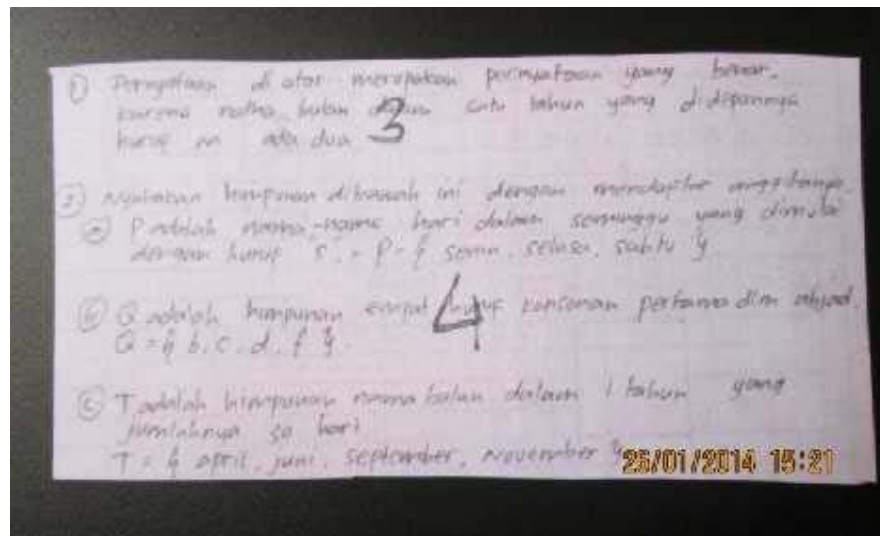 ① Pernyataan di atas merupakan pernyataan yang benar.
karena nama bulan dalam satu tahun yang didepannya
huruf m ada dua
3
2) Nyatakan himpunan dibawah ini dengan mendaftar anggotanya
ⓐ P adalah nama-nama hari dalam seminggu yang dimulai
dengan huruf "S". = P = { senin, selasa, sabtu }
ⓑ Q adalah himpunan empat huruf konsonan pertama dlm abjad.
4
Q = { b, c, d, f }.
ⓒ T adalah himpunan nama bulan dalam 1 tahun yang
jumlahnya 30 hari
T = { april, juni, september, november }
26/01/2014 15:21